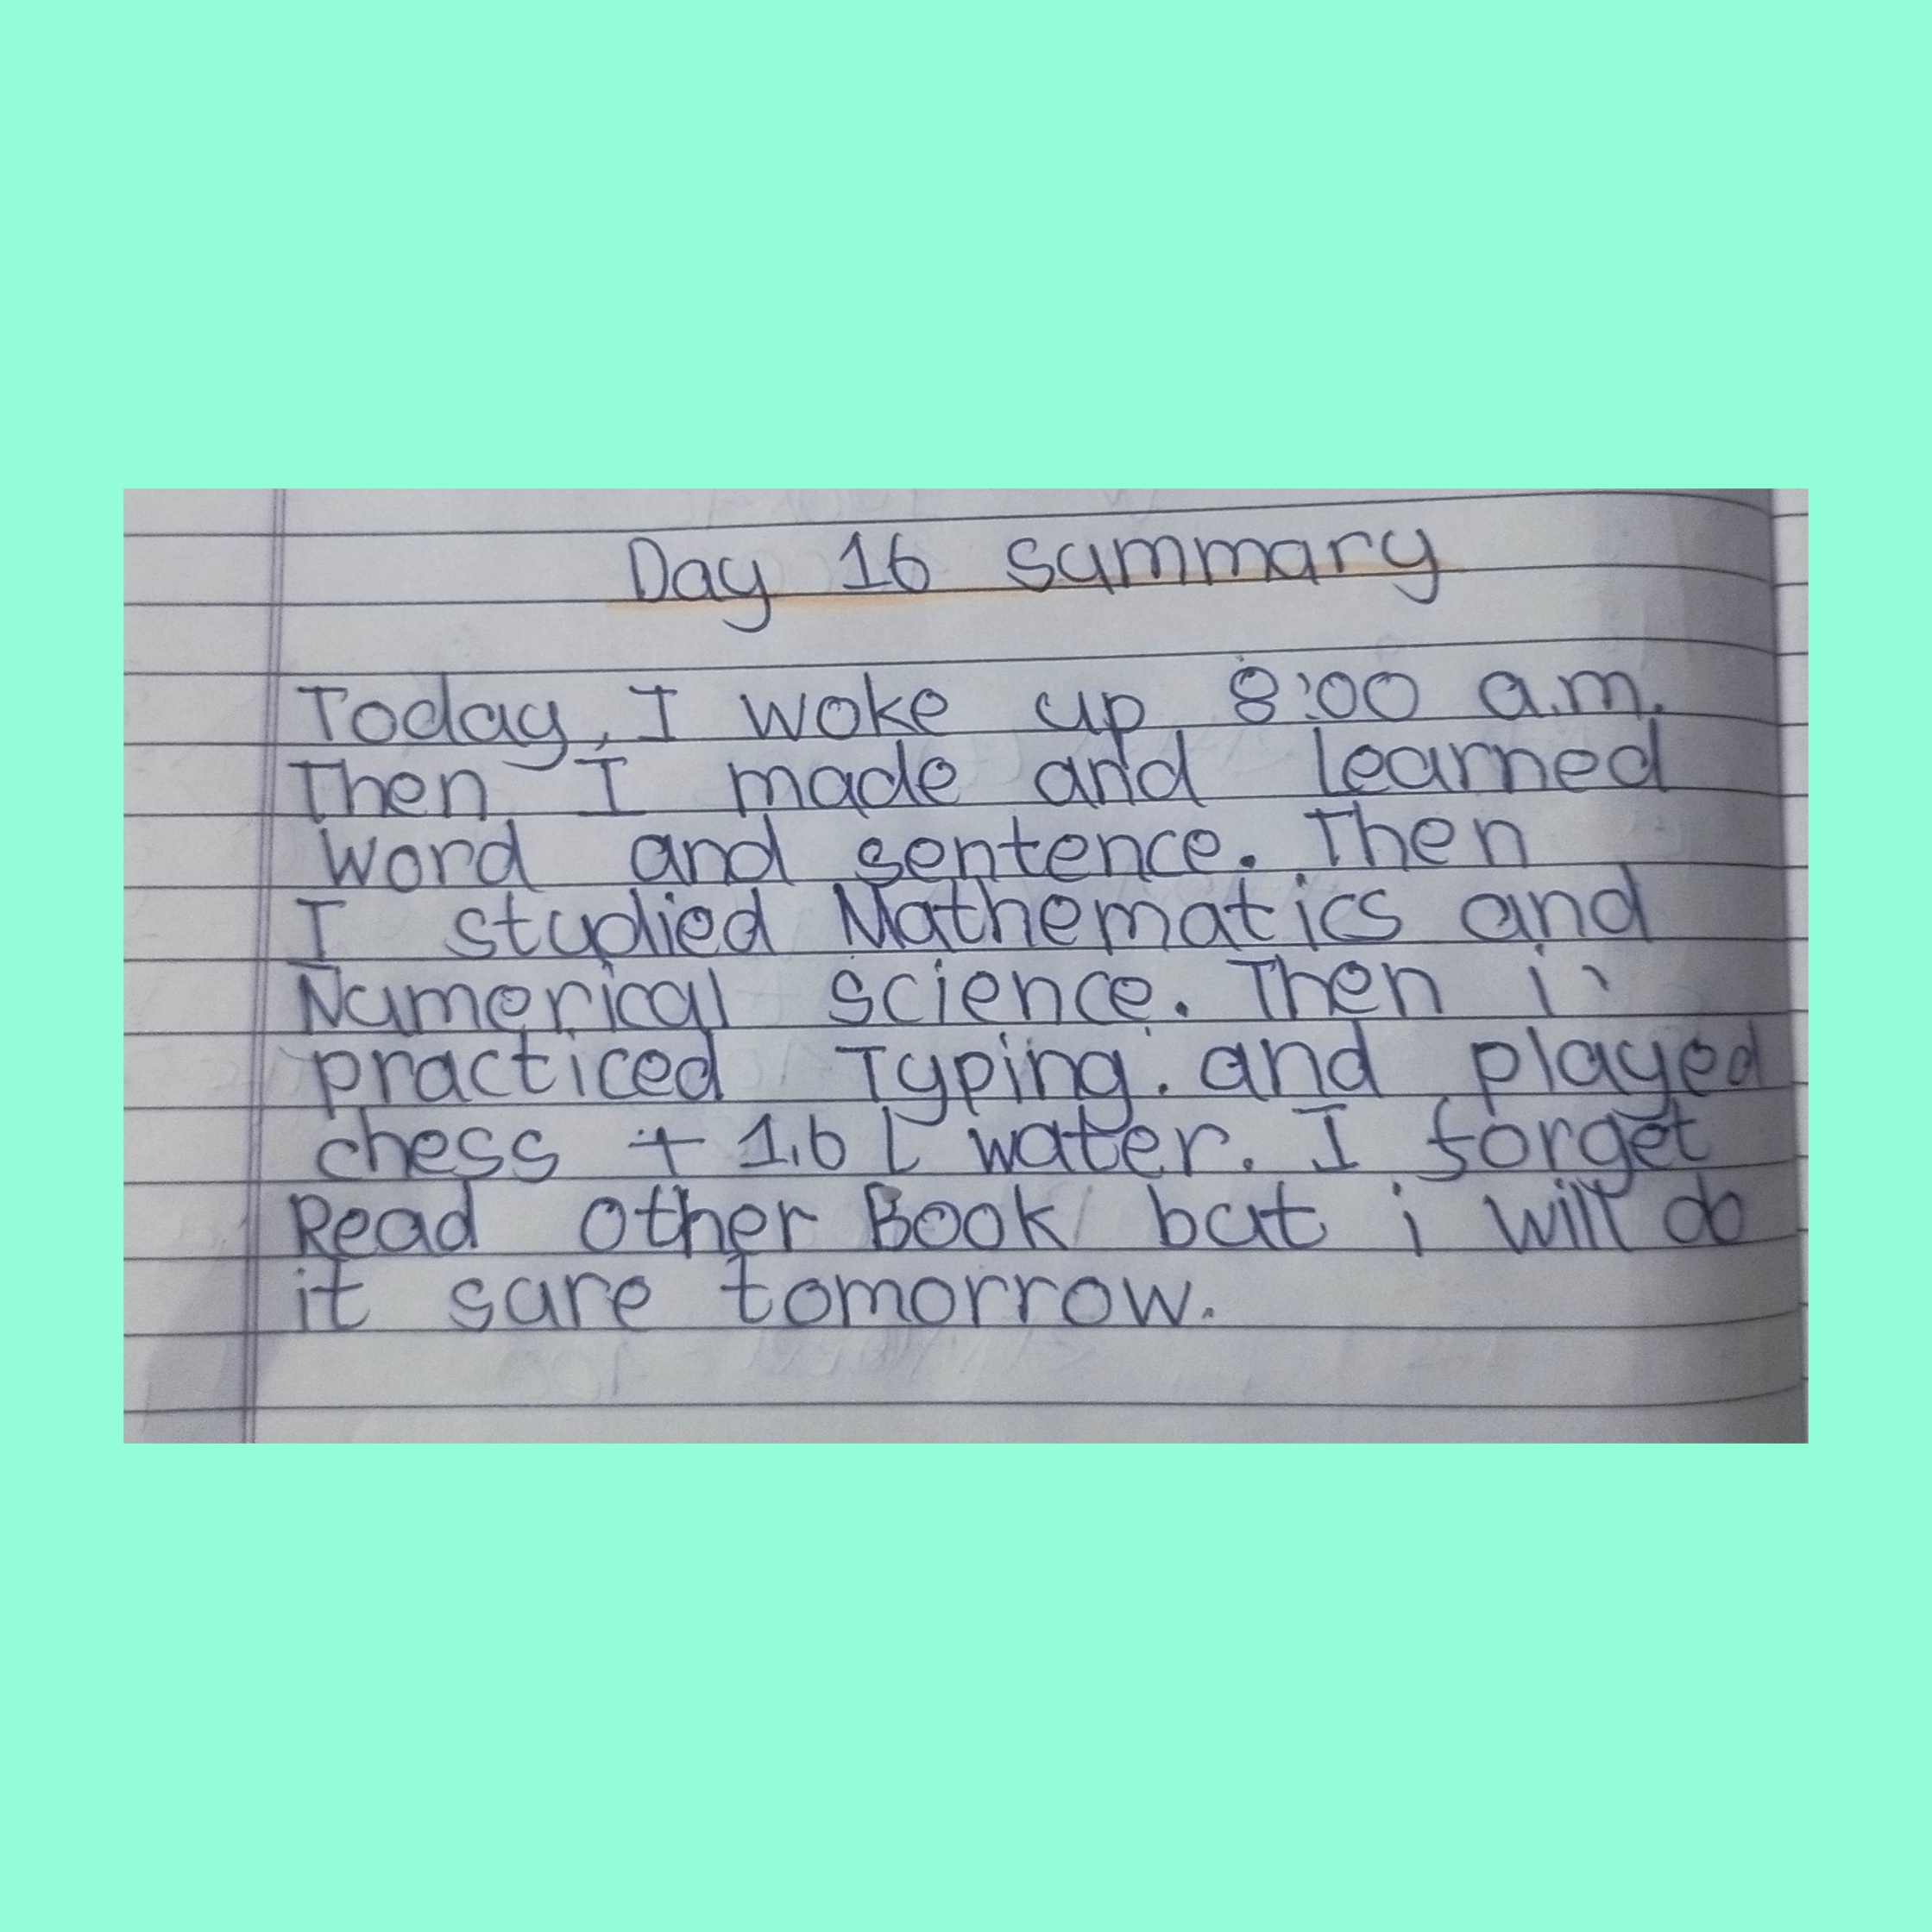 Day 16 summary
Today, I woke up 8:00 a.m.
Then I made and learned
word and sentence. Then
I studied Mathematics and
Numerical science. Then i
practiced Typing. and played
chess + 1.6 L water. I forget
Read other Book but i will do
it sure tomorrow.